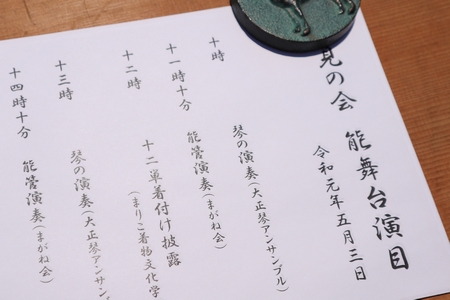 見の会 能舞台演目
令和元年五月三日
十時 琴の演奏(大正琴アンサンブル)
十一時十分 能管演奏(まがね会)
十二時 十二単着付け披露
(まりこ着物文化学
十三時 琴の演奏(大正琴アンサン
十四時十分 能管演奏(まがね会)